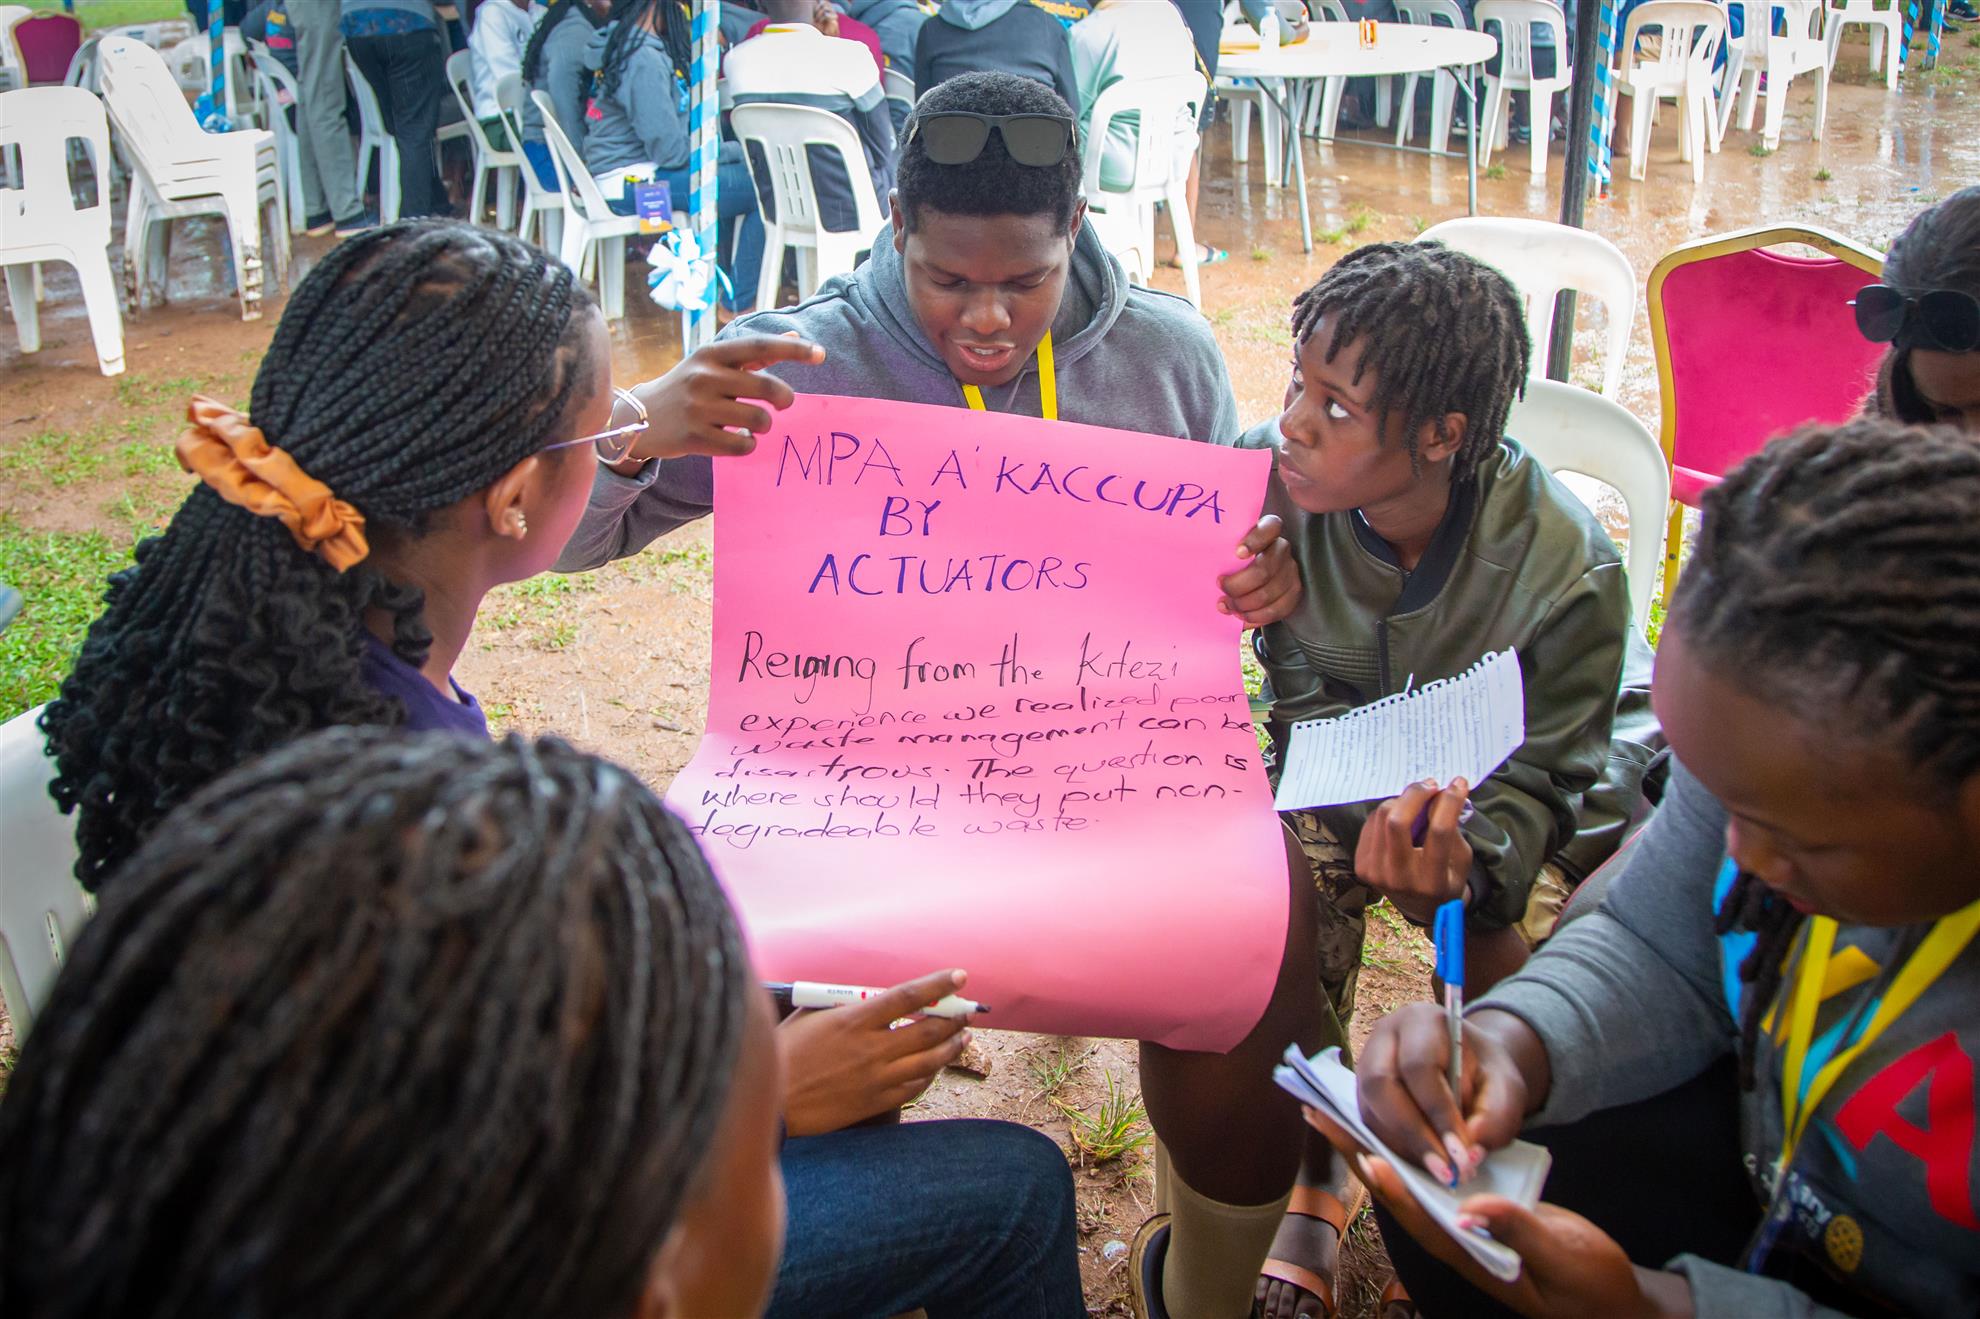 MPA A' KACCUPA
BY
ACTUATORS
Reigning from the Kitezi
experience we realized poor
waste management can be
disastrous. The question is
where should they put non-
degradeable waste.